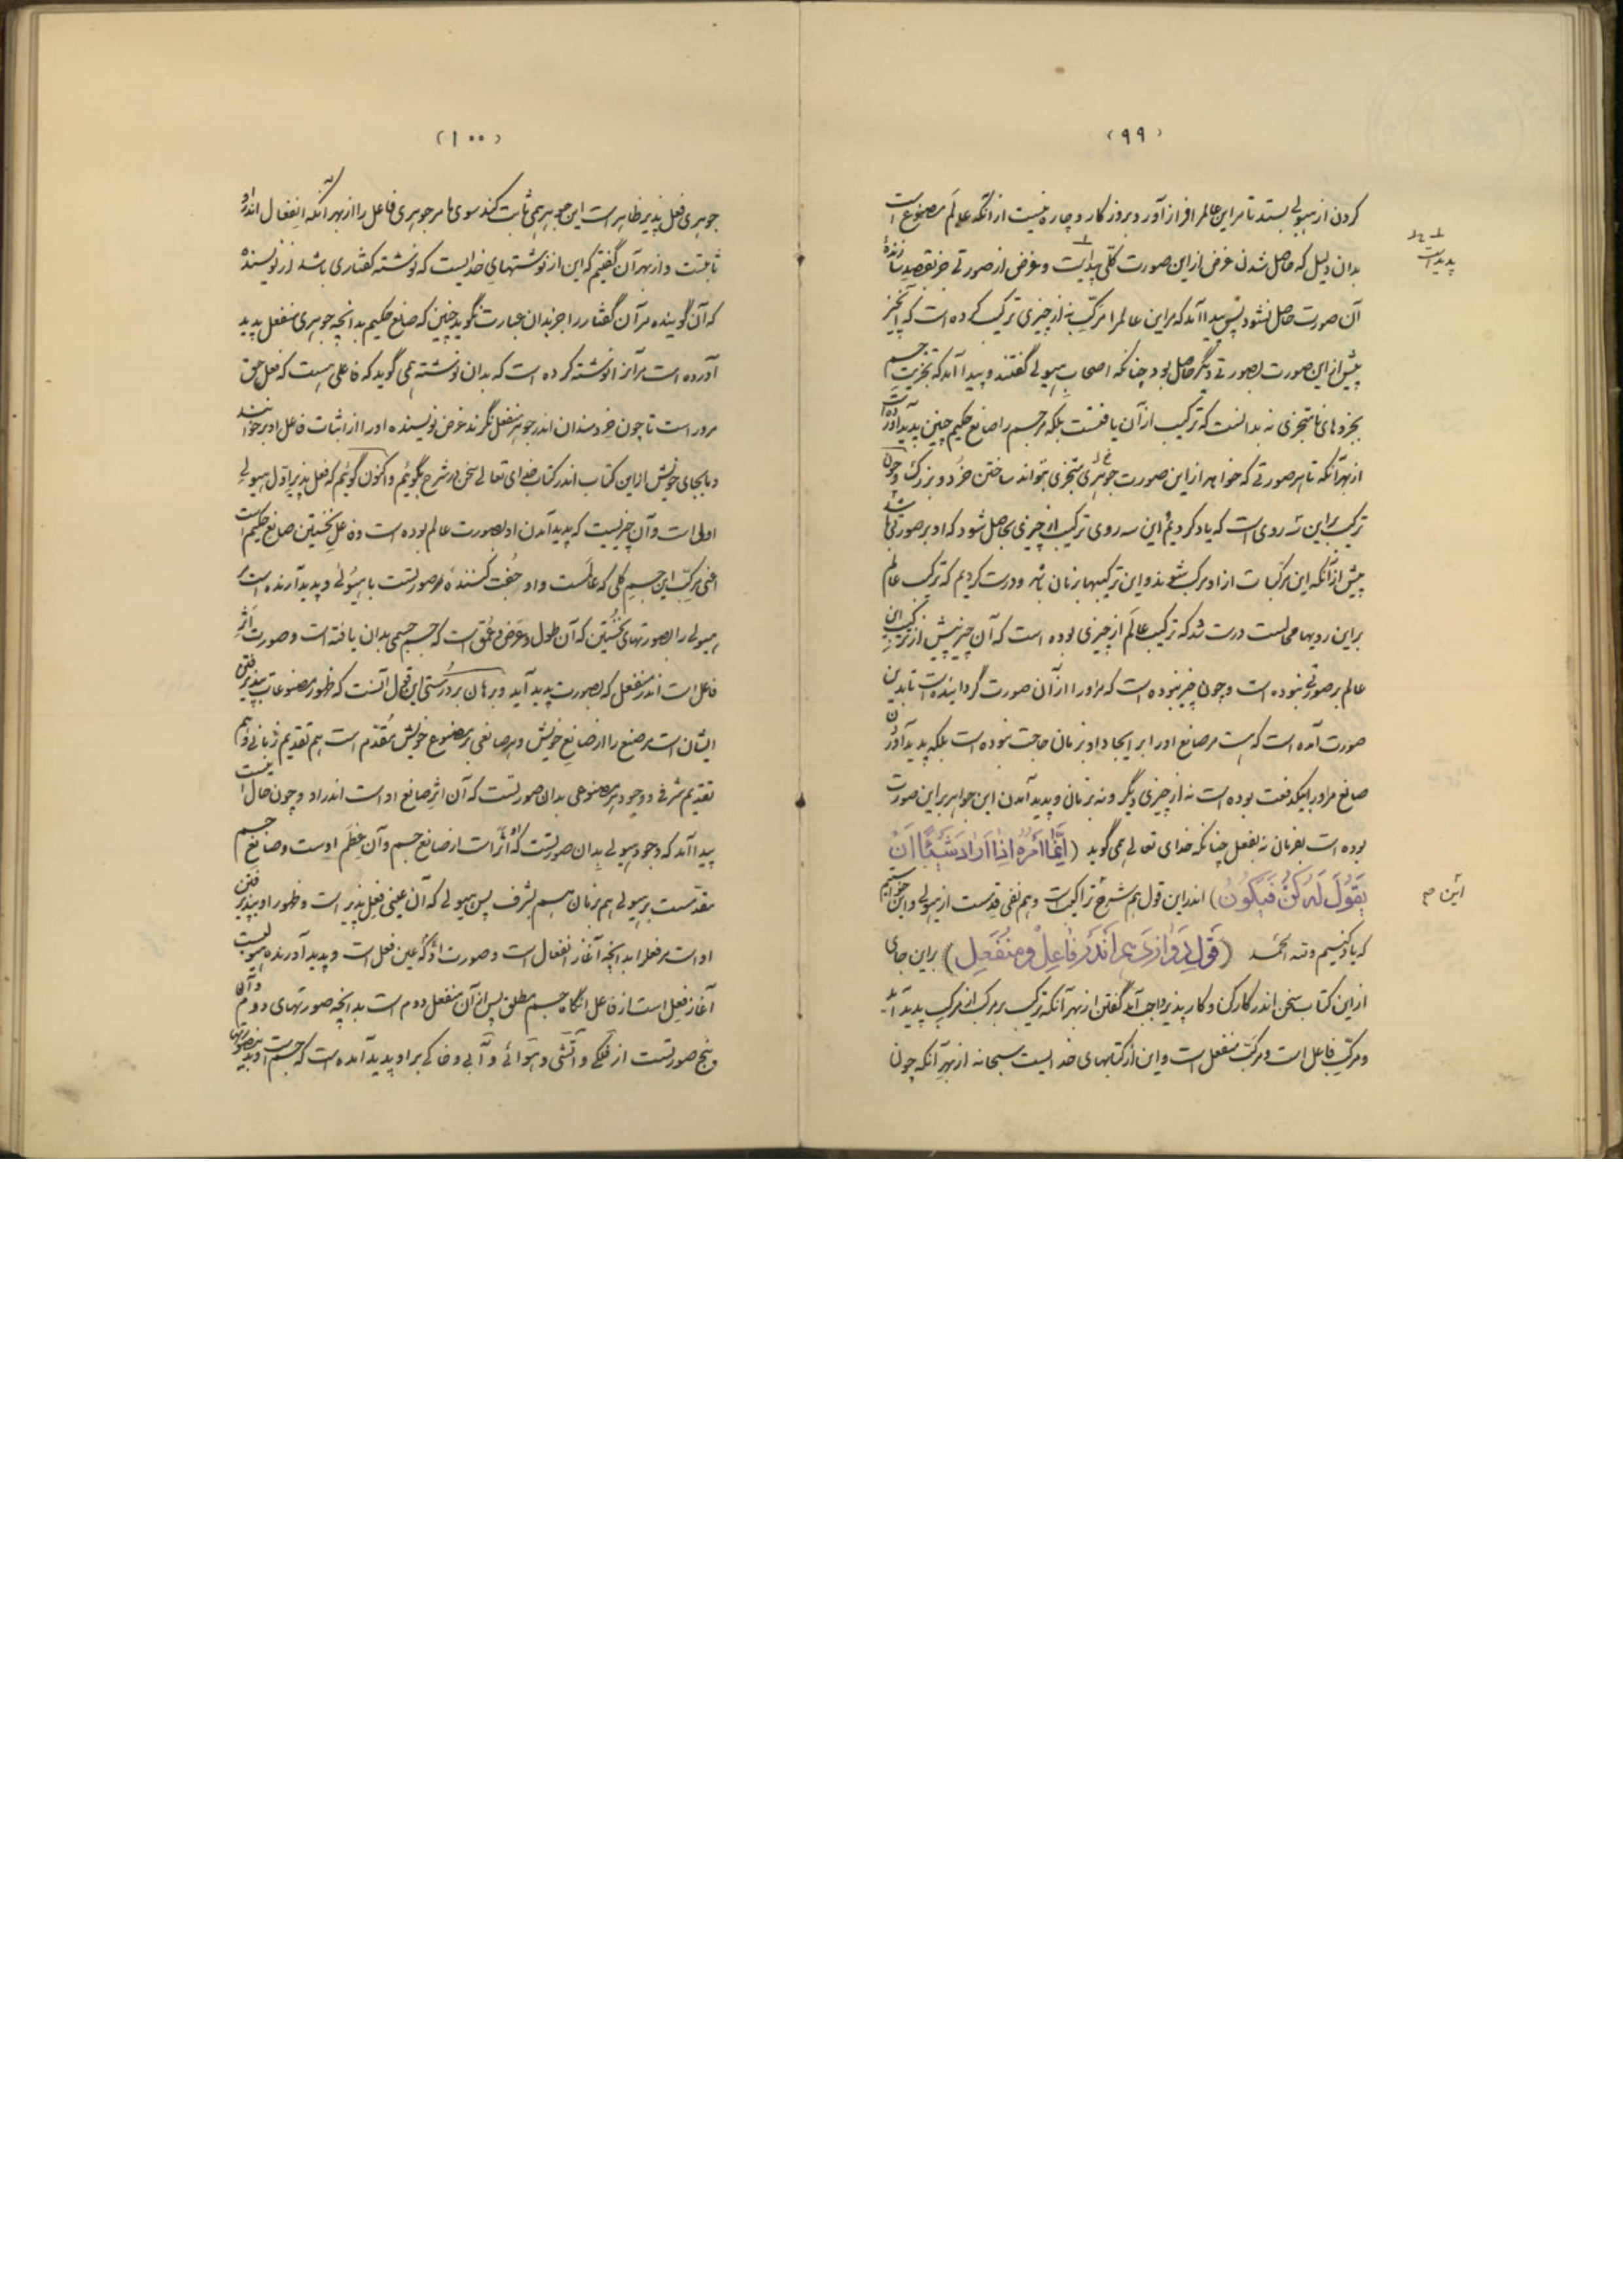 (۹۹)
کردن از هیولی بستد تا مر این عالم را فراز آورد و بروزگار و چاره نیست از آنکه عالم مصنوع است
بدان دلیل که حاصل شدن غرض از این صورت کلی پیداست و غرض از صورت جز بقصد سازنده
آن صورت حاصل نشود پس پیدا آمد که مر این عالم را مرکب نه از چیزی ترکیب کرده است که آن چیز
پیش از این صورت بصورتی دیگر حاصل بود چنانکه اصحاب هیولی گفتند و پیدا آمد که تجزیت جسم
بجزوهای نامتجزی نه بدانست که ترکیب از آن یافتست بلکه مر جسم را صانع حکیم چنین پدید آورده است
از بهر آنکه تا هر صورتی که خواهد از این صورت جوهری متجزی بتواند ساختن خرد و بزرگ و چون
ترکیب بر این سه روی است که یاد کردیم و این سه روی ترکیب از چیزی حاصل شود که او بر صورتی باشد
پیش از آنکه این مرکبات از او مرکب شوند و این ترکیبها بزمان باشد و درست کردیم که ترکیب عالم
بر این رویها محالست درست شد که ترکیب عالم از چیزی بوده است که آن چیز پیش از ترکیب این
عالم بر صورتی نبوده است و چون چیز نبوده است که مر او را از آن صورت گردانیده است تا بدین
صورت آمده است که هست مر صانع او را بر ایجاد او بزمان حاجت نبوده است بلکه پدید آوردن
صانع مر او را بیکدفعت بوده است نه از چیزی دیگر و نه بزمان و پدید آمدن این جواهر بر این صورت
بوده است بفرمان نه بفعل چنانکه خدای تعالی همی گوید (اِنَّما اَمْرُهُ اِذا اَرادَ شَیْئًا اَنْ
یَقُولَ لَهُ کُنْ فَیَکُونُ) اندر این قول هم شرح تراکیبست و هم نفی قدمست از هیولی و این خواستیم
که یاد کنیم ولله الحمد (قول دوازدهم اندر فاعل و منفعل) بر این جای
از این کتاب سخن اندر کارکن و کارپذیر واجب آمد گفتن از بهر آنکه ترکیب بر مرکب از مرکب پدید آید
و مرکب فاعل است و مرکب منفعل است و این از کتابهای خدایست سبحانه از بهر آنکه چون
پدید است
این م
(۱۰۰)
جوهری فعل پذیر ظاهر است این جوهر همی ثابت کند سوی ما مر جوهری فاعل را از بهر آنکه انفعال اندر او
ثابتست و از بهر آن گفتیم که این از نوشتهای خدایست که نوشته گفتاری باشد از نویسنده
که آن گوینده مر آن گفتار را جز بدان عبارت نگوید چنین که صانع حکیم بدانچه جوهری منفعل پدید
آورده است مر آنرا نوشته کرده است که بدان نوشته همی گوید که فاعلی هست که فعل حق
مر او راست تا چون خردمندان اندر جوهر منفعل نگرند غرض نویسنده او را از اثبات فاعل او برخوانند
و ما بجای خویش از این کتاب اندر کتاب خدای تعالی سخن مشرح بگوئیم و اکنون گوئیم که فعل پذیر اول هیولی
اولی است و آن چیزیست که پدید آمدن او بصورت عالم بوده است و فاعل نخستین صانع حکیم است
اعنی مرکب این جسم کلی که عالمست و او جفت کننده مر صورتست با هیولی و پدید آرنده است
هیولی را بصورتهای نخستین که آن طول و عرض و عمق است که جسم جسمی بدان یافته است و صورت اثر
فاعل است اندر منفعل که بصورت پدید آید و برهان بر درستی این قول آنست که ظهور مصنوعات بپذیرفتن
ایشان است مر صنع را از صانع خویش و هر صانعی بر مصنوع خویش مقدم است هم تقدیم زمانی و هم
تقدیم شرفی و وجود هر مصنوعی بدان صورتست که آن اثر صانع او است اندر او و چون حال اینست
پیدا آمد که وجود هیولی بدان صورتست که اثر است از صانع جسم و آن عظم اوست و صانع جسم
مقدمست بر هیولی هم بزمان هم بشرف پس هیولی که آن عینی فعل پذیر است و ظهور او بپذیرفتن
او است مر فعل را بدانچه آغاز انفعال است و صورت او که عین فعل است و پدید آورنده هیولیست
آغاز فعل است از فاعل آنگاه جسم مطلق پس از آن منفعل دوم است بدانچه صورتهای دوم و آن
پنج صورتست از فلکی و آتشی و هوائی و آبی و خاکی بر او پدید آمده است که جسم است و بدین صورتها